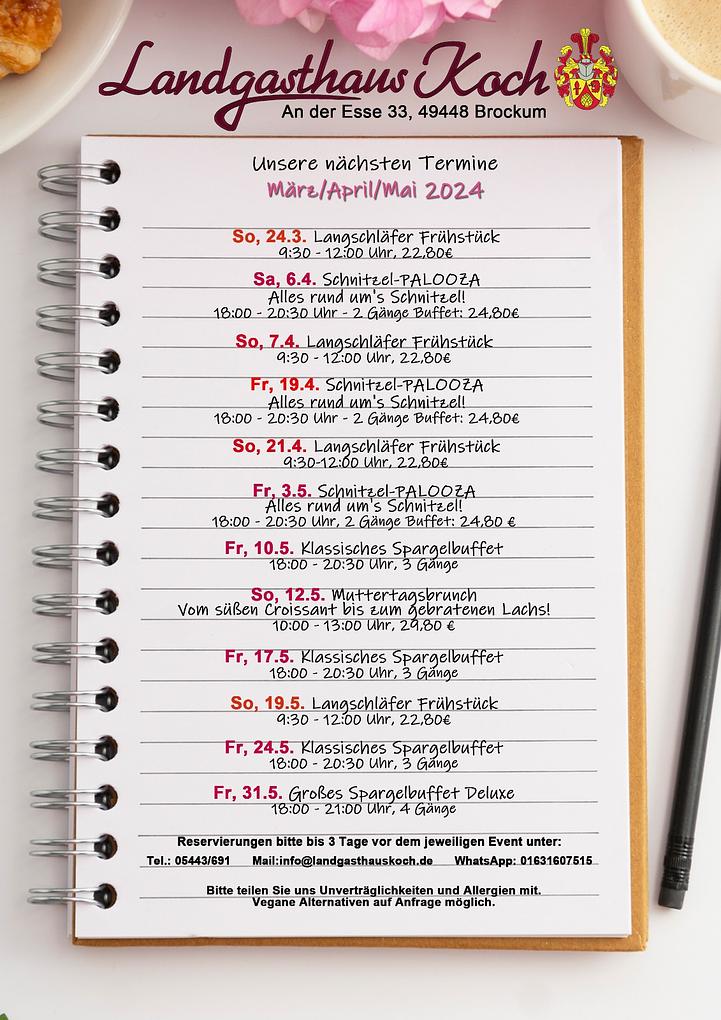 Landgasthaus Koch
An der Esse 33, 49448 Brockum
Unsere nächsten Termine
März/April/Mai 2024
So, 24.3. Langschläfer Frühstück
9:30 - 12:00 Uhr, 22,80€
Sa, 6.4. Schnitzel-PALOOZA
Alles rund um's Schnitzel!
18:00 - 20:30 Uhr - 2 Gänge Buffet: 24,80€
So, 7.4. Langschläfer Frühstück
9:30 - 12:00 Uhr, 22,80€
Fr, 19.4. Schnitzel-PALOOZA
Alles rund um's Schnitzel!
18:00 - 20:30 Uhr - 2 Gänge Buffet: 24,80€
So, 21.4. Langschläfer Frühstück
9:30-12:00 Uhr, 22,80€
Fr, 3.5. Schnitzel-PALOOZA
Alles rund um's Schnitzel!
18:00 - 20:30 Uhr, 2 Gänge Buffet: 24,80 €
Fr, 10.5. Klassisches Spargelbuffet
18:00 - 20:30 Uhr, 3 Gänge
So, 12.5. Muttertagsbrunch
Vom süßen Croissant bis zum gebratenen Lachs!
10:00 - 13:00 Uhr, 29,80 €
Fr, 17.5. Klassisches Spargelbuffet
18:00 - 20:30 Uhr, 3 Gänge
So, 19.5. Langschläfer Frühstück
9:30 - 12:00 Uhr, 22,80€
Fr, 24.5. Klassisches Spargelbuffet
18:00 - 20:30 Uhr, 3 Gänge
Fr, 31.5. Großes Spargelbuffet Deluxe
18:00 - 21:00 Uhr, 4 Gänge
Reservierungen bitte bis 3 Tage vor dem jeweiligen Event unter:
Tel.: 05443/691 Mail:info@landgasthauskoch.de WhatsApp: 01631607515
Bitte teilen Sie uns Unverträglichkeiten und Allergien mit.
Vegane Alternativen auf Anfrage möglich.